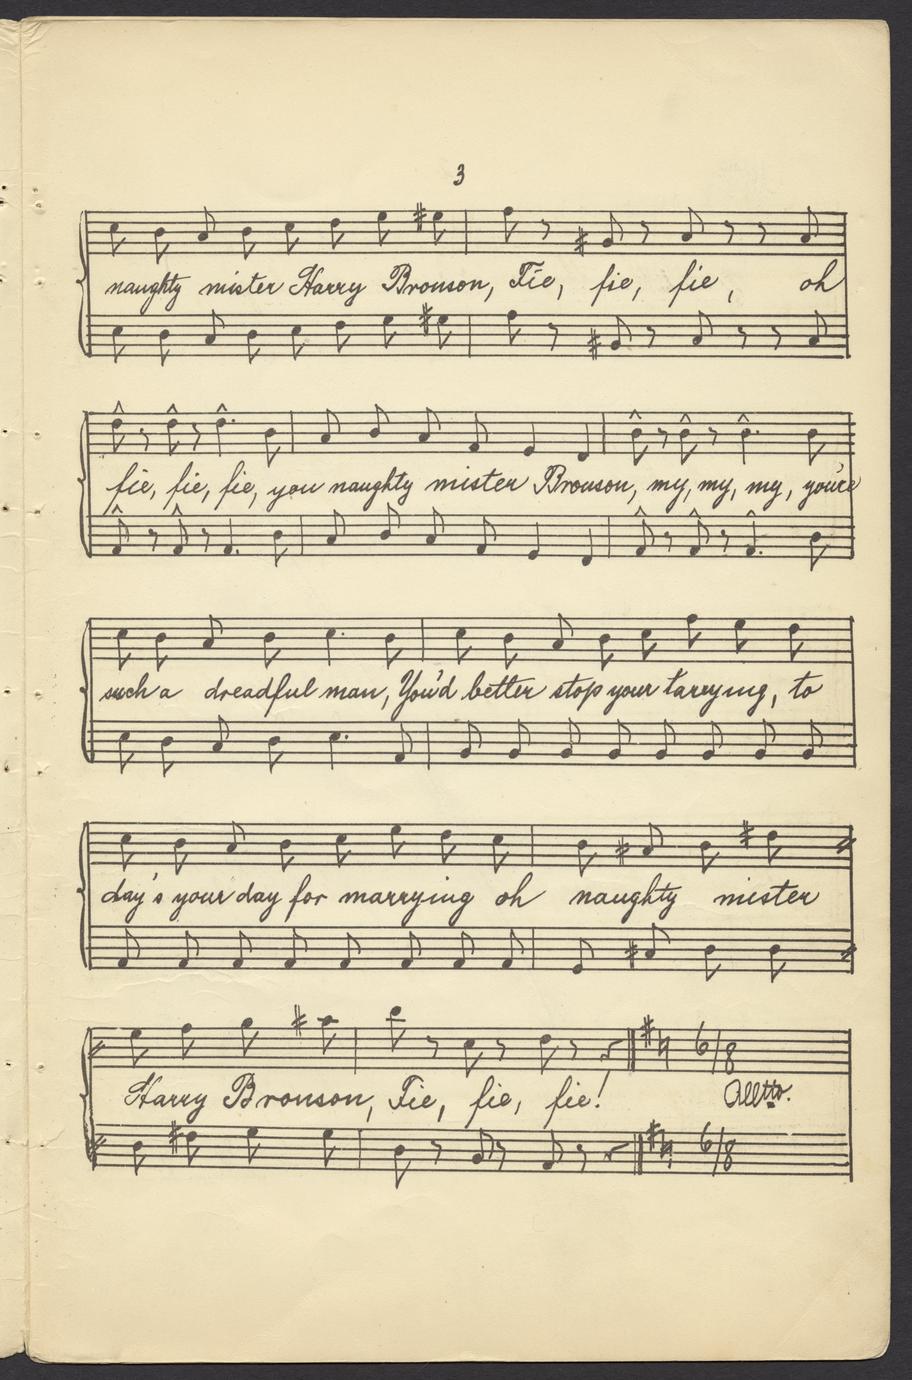 3
naughty mister Harry Bronson, Fie, fie, fie, oh
fie, fie, fie, you naughty mister Bronson, my, my, my, you're
such a dreadful man, You'd better stop your tarrying, to
day's your day for marrying oh naughty mister
6/8
Harry Bronson, Fie, fie, fie! Alltto.
6/8